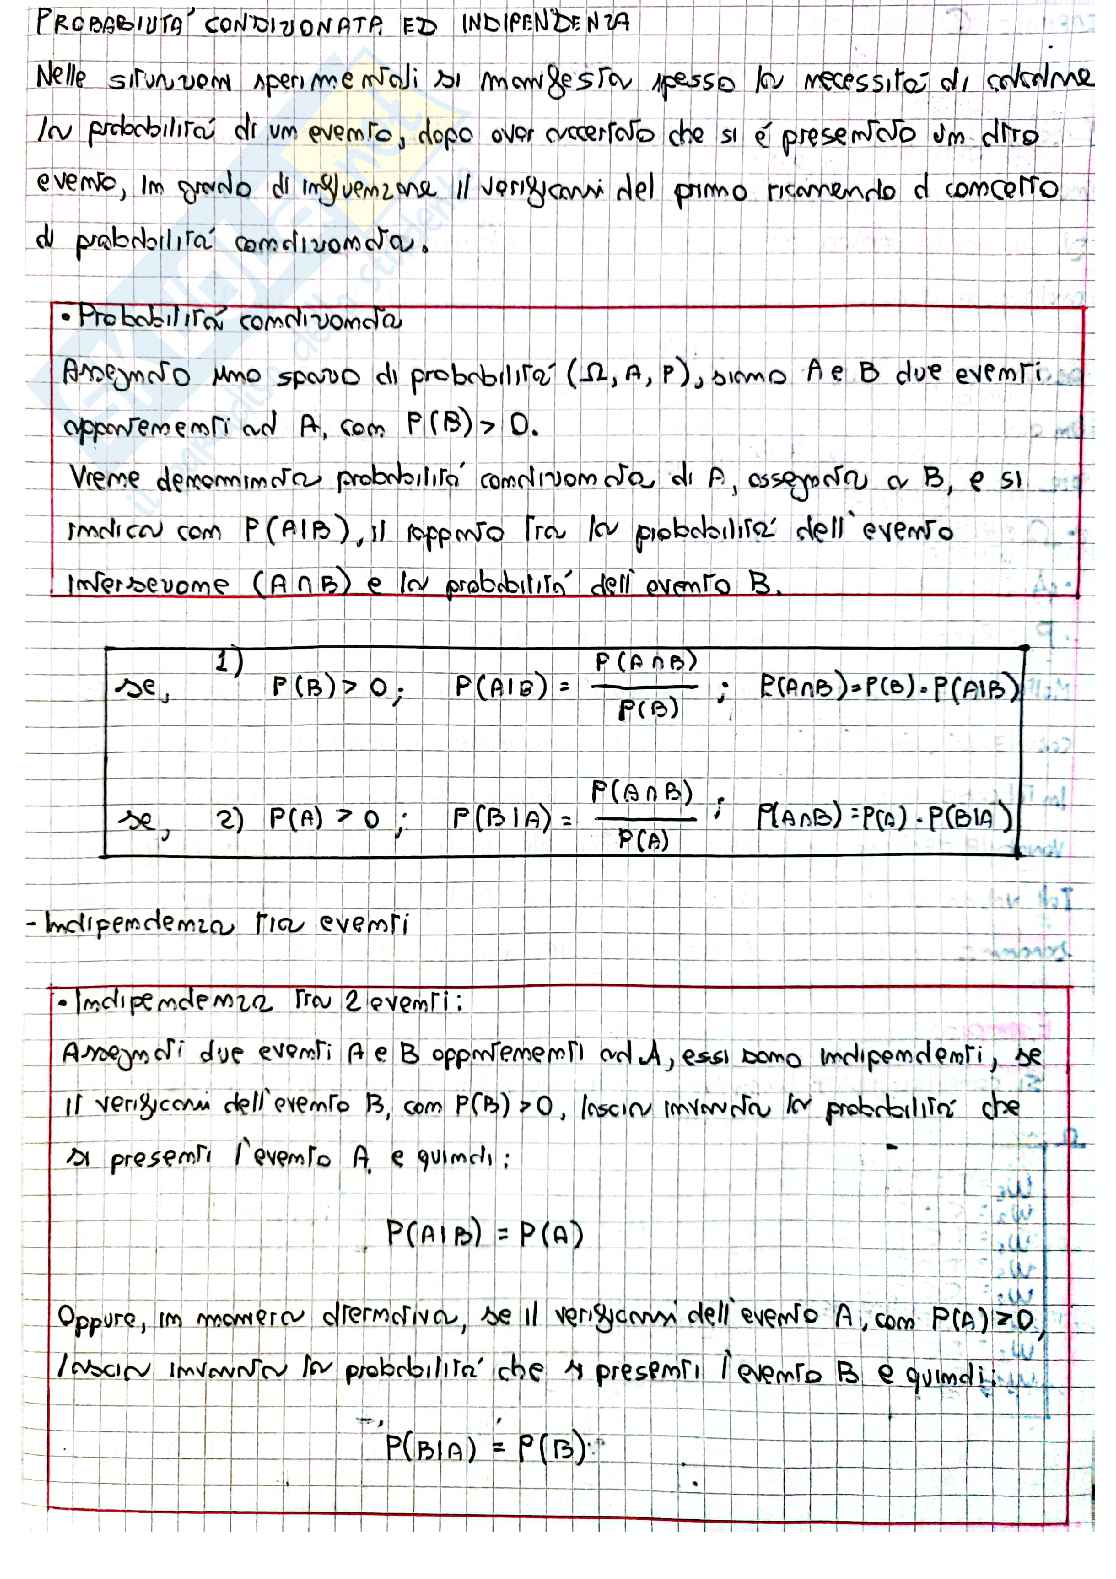 PROBABILITÁ CONDIZIONATA ED INDIPENDENZA
Nelle situazioni sperimentali si manifesta spesso la necessitá di calcolare
la probabilitá di un evento, dopo aver accertato che si é presentato un altro
evento, in grado di influenzare il verificarsi del primo ricorrendo al concetto
di probabilitá condizionata.
• Probabilitá condizionata
Assegnato uno spazio di probabilitá (Ω, A, P), siano A e B due eventi
appartenenti ad A, con P(B) > 0.
Viene denominata probabilitá condizionata di A, assegnata a B, e si
indica con P(A|B), il rapporto tra la probabilitá dell'evento
intersezione (A∩B) e la probabilitá dell'evento B.
se, 1) P(B) > 0; P(A|B) = P(A∩B) / P(B) ; P(A∩B) = P(B) · P(A|B)
se, 2) P(A) > 0; P(B|A) = P(A∩B) / P(A) ; P(A∩B) = P(A) · P(B|A)
- Indipendenza tra eventi
• Indipendenza tra 2 eventi:
Assegnati due eventi A e B appartenenti ad A, essi sono indipendenti, se
il verificarsi dell'evento B, con P(B) > 0, lascia invariata la probabilitá che
si presenti l'evento A e quindi:
P(A|B) = P(A)
Oppure, in maniera alternativa, se il verificarsi dell'evento A, con P(A) > 0,
lascia invariata la probabilitá che si presenti l'evento B e quindi:
P(B|A) = P(B)